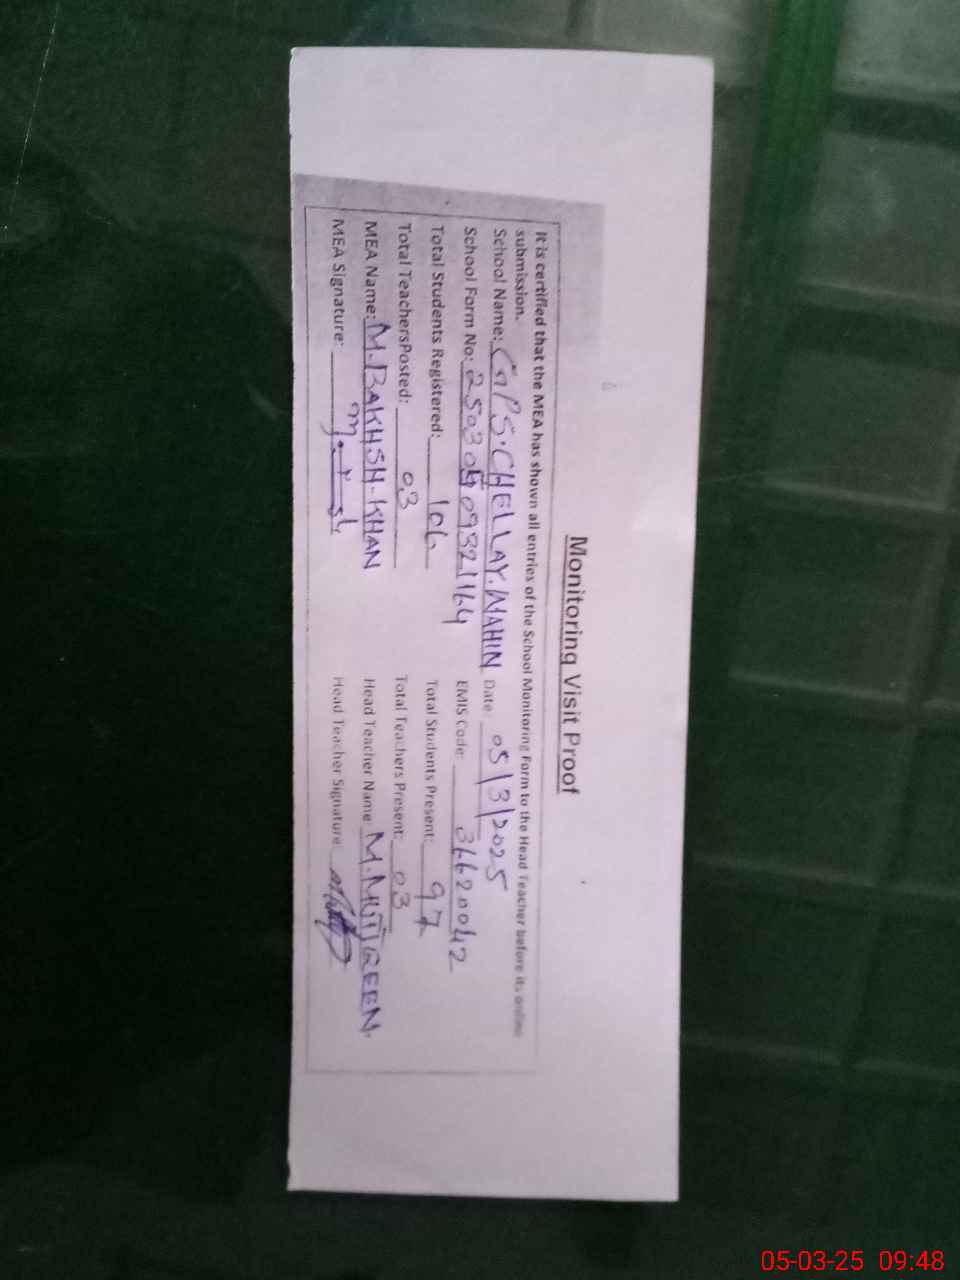 Monitoring Visit Proof
It is certified that the MEA has shown all entries of the School Monitoring Form to the Head Teacher before its online
submission.
School Name: GPS.CHELLAY.WAHIN Date: 05/3/2025
School Form No: 25030409321164 EMIS Code: 36620042
Total Students Registered: 106 Total Students Present: 97
Total TeachersPosted: 03 Total Teachers Present: 03
MEA Name: M.BAKHSH-KHAN Head Teacher Name: M.
MEA Signature: Head Teacher Signature:
05-03-25 09:48